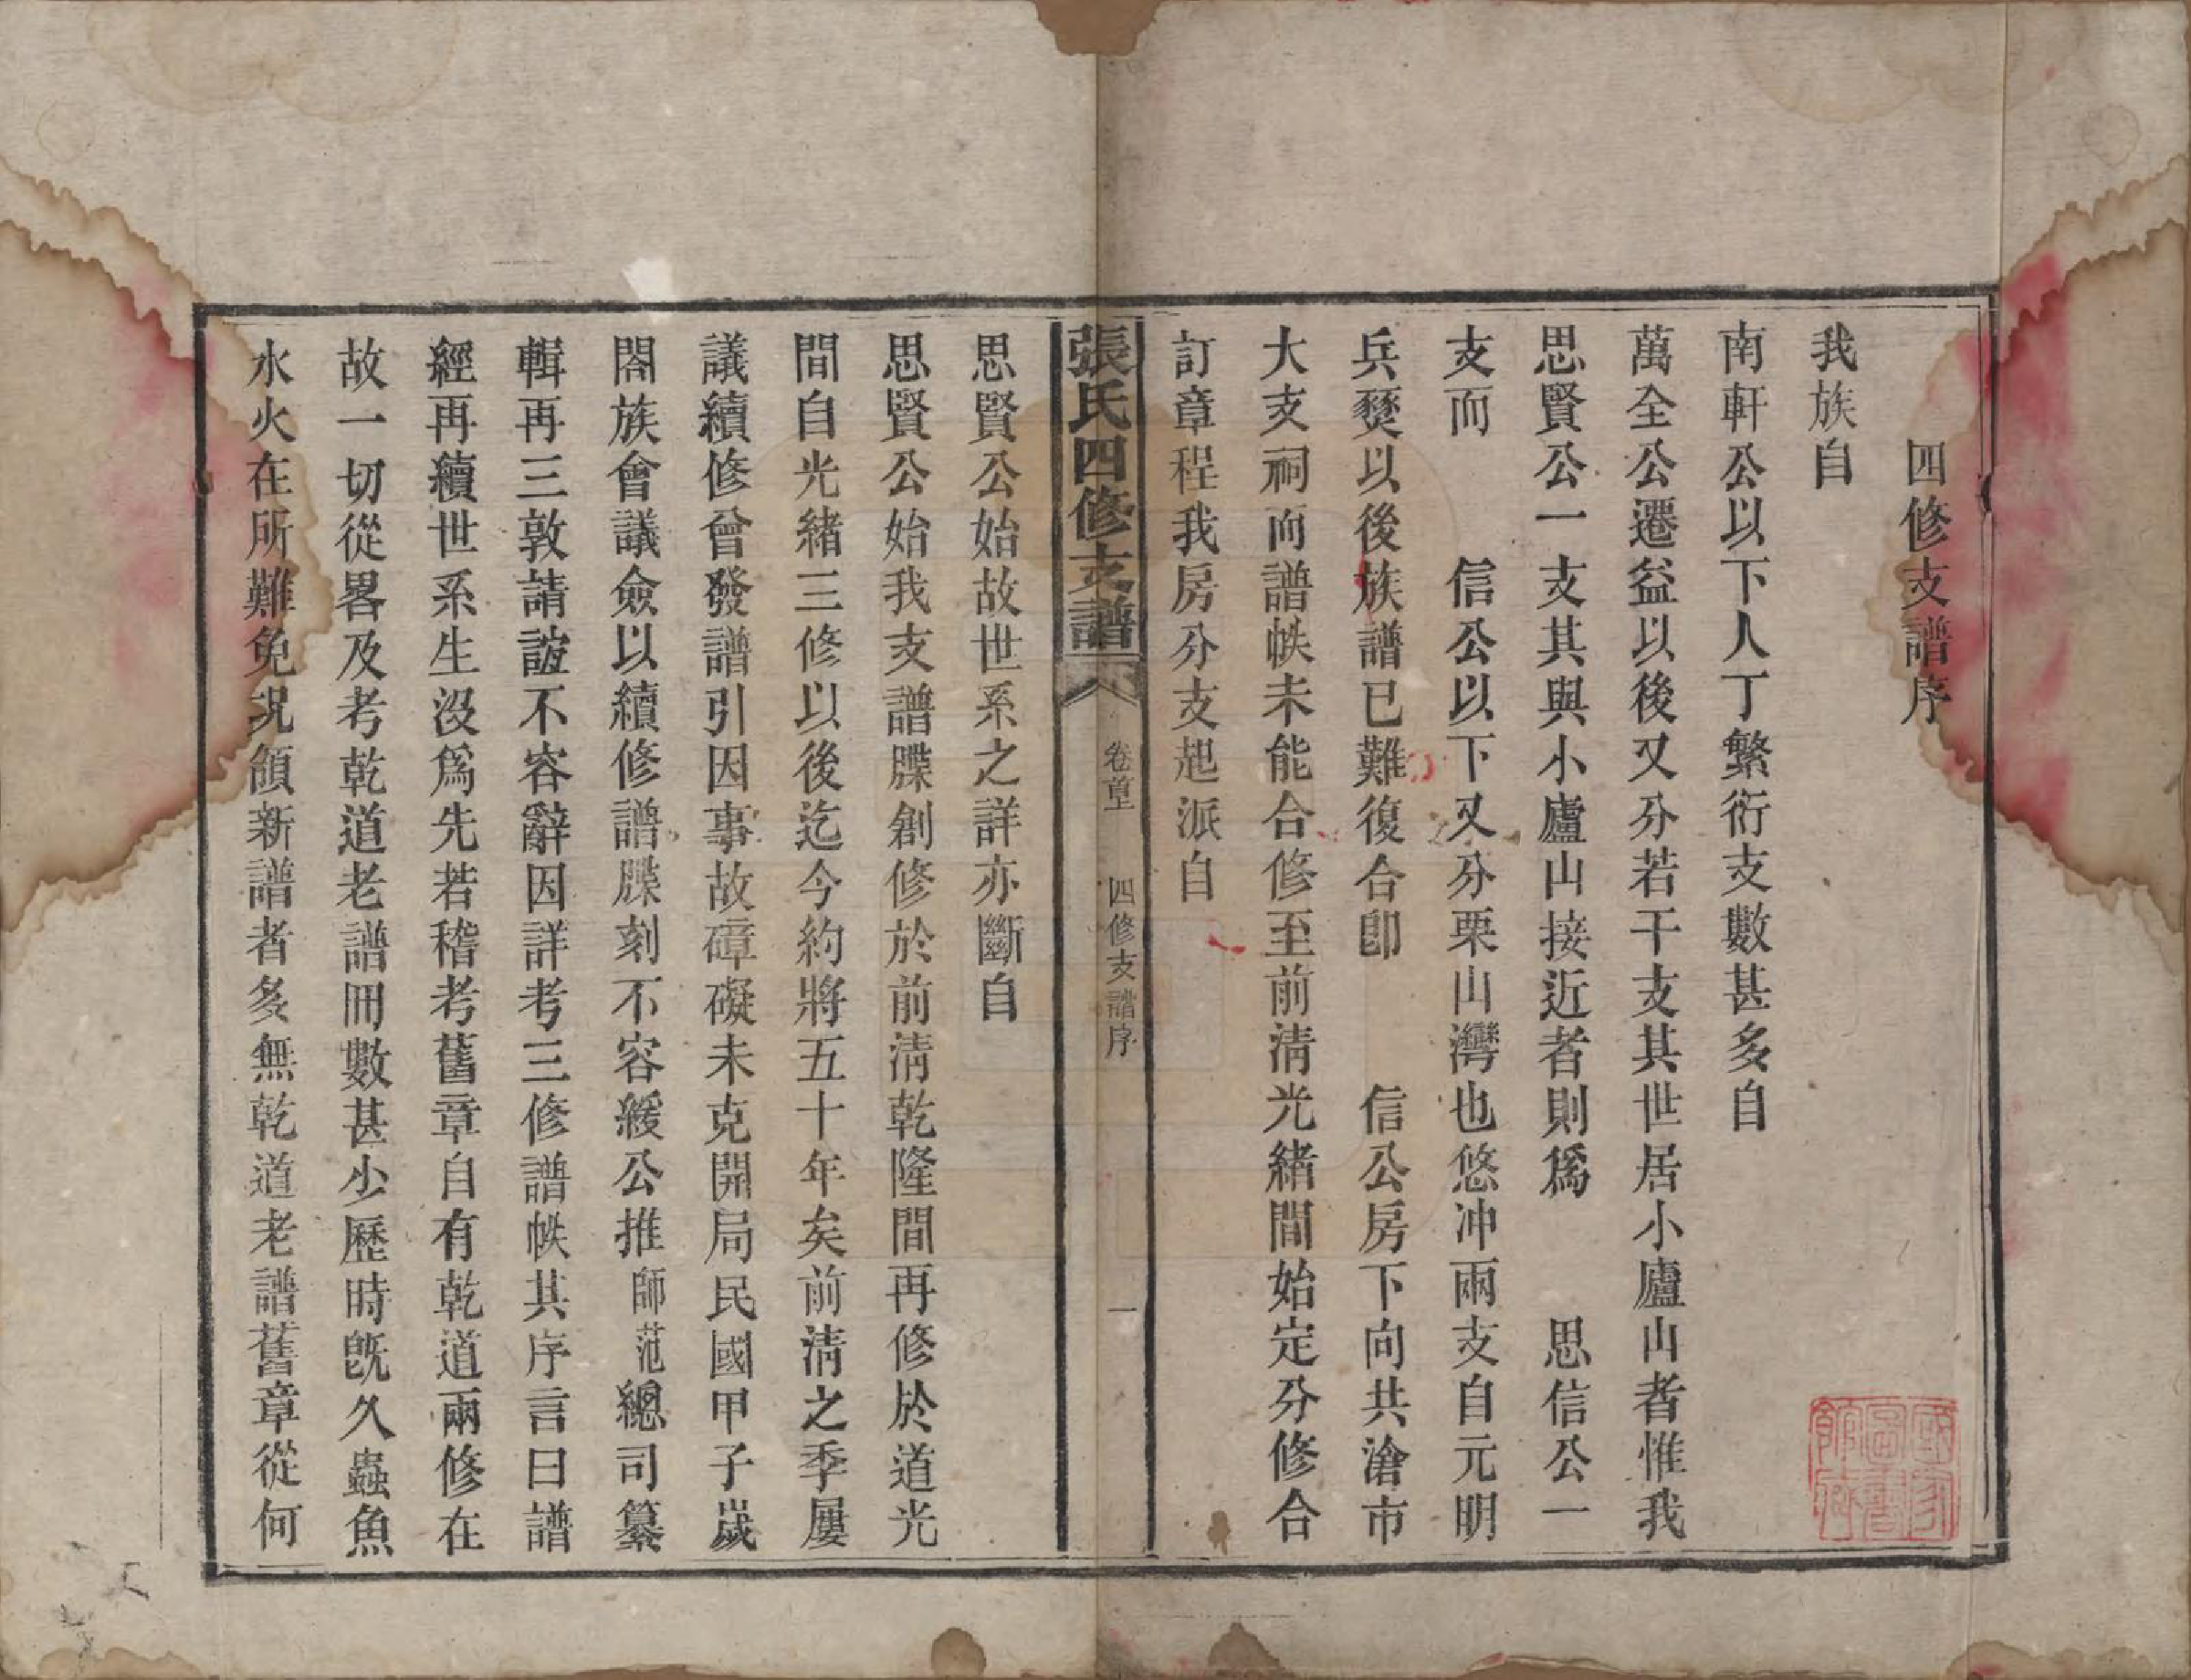 四修支譜序
我族自
南軒公以下人丁繁衍支數甚多自
萬全公遷益以後又分若干支其世居小廬山者惟我
思賢公一支其與小廬山接近者則爲 思信公一
支而 信公以下又分栗山灣也悠冲兩支自元明
兵燹以後族譜已難復合卽 信公房下向共滄市
大支祠而譜帙未能合修至前清光緒間始定分修合
訂章程我房分支起派自
張氏四修支譜 卷首上 四修支譜序 一
思賢公始故世系之詳亦斷自
思賢公始我支譜牒創修於前清乾隆間再修於道光
間自光緒三修以後迄今約將五十年矣前清之季屢
議續修曾發譜引因事故障礙未克開局民國甲子歲
閤族會議僉以續修譜牒刻不容緩公推師范總司纂
輯再三敦請誼不容辭因詳考三修譜帙其序言曰譜
經再續世系生沒爲先若稽考舊章自有乾道兩修在
故一切從畧及考乾道老譜冊數甚少歷時旣久蟲魚
水火在所難免況領新譜者多無乾道老譜舊章從何
國家圖書館藏